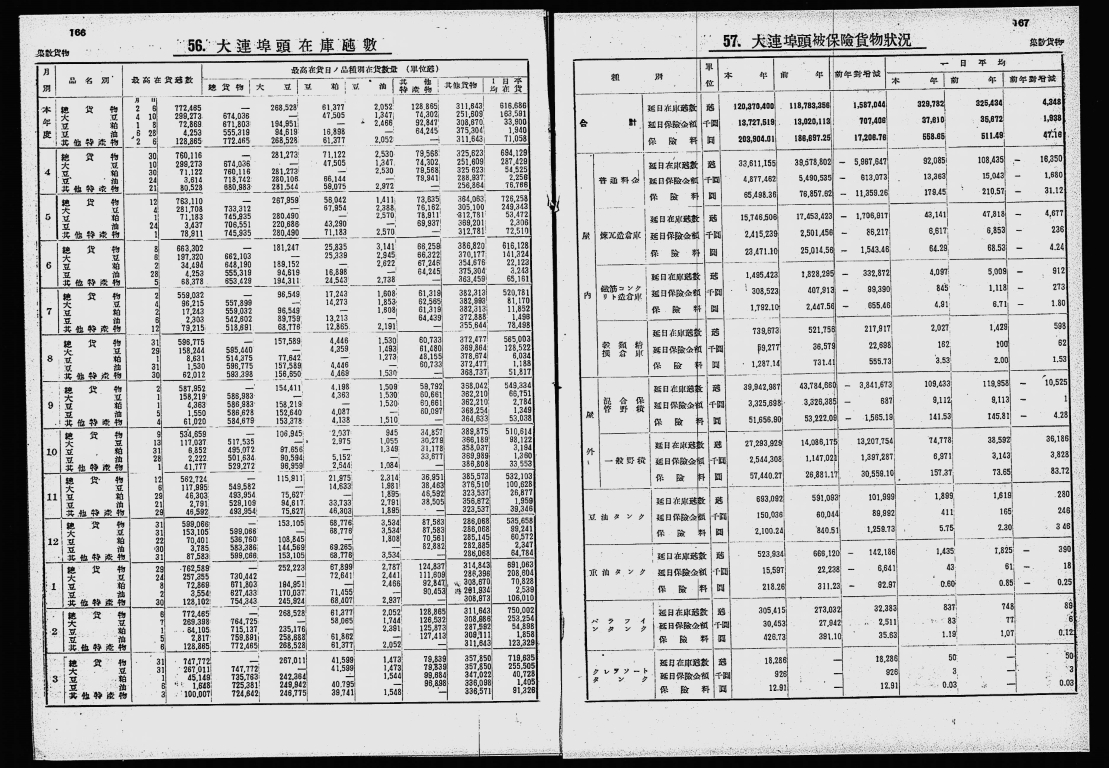 166
集散貨物
56. 大連埠頭在庫瓲數
月別 品名別 最高在貨瓲數 最高在貨日ノ品種別在貨數量(單位瓲) 一日平均在貨
總貨物 大豆 豆粕 豆油 其他特產物 其他貨物
本年度
總貨物 2 6 772,465 — 268,528 61,377 2,052 128,865 311,643 616,686
大豆 4 10 299,273 674,036 — 47,505 1,347 74,302 251,609 163,591
豆粕 1 8 72,869 671,803 194,951 — 2,466 92,847 308,670 33,900
豆油 6 28 4,253 555,319 94,619 16,898 — 64,245 375,304 1,940
其他特產物 2 6 128,865 772,465 268,528 61,377 2,052 — 311,643 71,058
4
總貨物 30 760,116 — 281,273 71,122 2,530 79,568 325,623 694,129
大豆 10 299,273 674,036 — 47,505 1,347 74,302 251,609 287,429
豆粕 30 71,122 760,116 281,273 — 2,530 79,568 325,623 54,525
豆油 24 3,614 718,742 280,106 66,144 — 79,941 288,937 2,256
其他特產物 21 80,528 680,983 281,544 59,075 2,972 — 256,864 76,766
5
總貨物 12 763,110 — 267,959 56,042 1,411 73,635 364,063 726,258
大豆 4 281,708 733,312 — 67,954 2,388 76,162 305,100 249,343
豆粕 1 71,183 745,935 280,490 — 2,570 78,911 312,781 53,472
豆油 24 3,437 706,551 220,686 43,290 — 69,937 369,201 2,306
其他特產物 1 78,911 745,935 280,490 71,183 2,570 — 312,781 72,510
6
總貨物 8 663,302 — 181,247 25,835 3,141 66,259 386,820 616,128
大豆 6 197,320 662,103 — 25,339 2,945 66,322 370,177 141,324
豆粕 2 34,494 648,190 189,152 — 2,622 67,246 354,676 22,123
豆油 28 4,253 555,319 94,619 16,898 — 64,245 375,304 3,243
其他特產物 5 68,378 653,429 194,311 24,543 2,738 — 363,459 65,161
7
總貨物 2 559,032 — 96,549 17,243 1,608 61,319 382,313 520,781
大豆 4 96,215 557,899 — 14,273 1,853 62,565 382,993 81,170
豆粕 2 17,243 559,032 96,549 — 1,608 61,319 382,313 11,852
豆油 6 2,303 542,602 89,759 13,213 — 64,439 372,888 1,498
其他特產物 12 79,215 518,691 68,776 12,865 2,191 — 355,644 78,498
8
總貨物 31 596,775 — 157,589 4,446 1,530 60,733 372,477 565,003
大豆 29 158,244 595,440 — 4,359 1,493 61,480 369,864 128,522
豆粕 1 8,631 514,375 77,642 — 1,273 48,155 378,674 6,034
豆油 31 1,530 596,775 157,589 4,446 — 60,733 372,477 1,188
其他特產物 30 62,012 593,398 156,650 4,469 1,530 — 368,737 51,817
9
總貨物 2 587,952 — 154,411 4,198 1,509 59,792 368,042 549,334
大豆 1 158,219 586,983 — 4,363 1,530 60,661 362,210 66,751
豆粕 1 4,363 586,983 158,219 — 1,530 60,661 362,210 2,784
豆油 5 1,550 586,628 152,640 4,087 — 60,097 368,254 1,349
其他特產物 4 61,020 584,679 153,378 4,138 1,510 — 364,633 53,038
10
總貨物 9 534,659 — 106,945 2,037 945 34,857 389,875 510,614
大豆 13 117,037 517,535 — 2,975 1,055 30,279 366,189 98,122
豆粕 31 6,852 495,072 97,656 — 1,349 31,178 358,037 3,194
豆油 28 2,222 501,634 90,594 5,152 — 33,677 369,989 1,360
其他特產物 1 41,777 529,272 96,959 2,544 1,084 — 386,808 33,553
11
總貨物 12 562,724 — 115,911 21,975 2,314 36,951 385,573 532,103
大豆 6 117,995 549,582 — 14,633 1,981 38,463 376,510 100,628
豆粕 29 46,303 493,954 75,627 — 1,895 46,592 323,537 26,877
豆油 21 2,791 529,109 94,617 33,733 — 38,505 356,672 1,959
其他特產物 29 46,592 493,954 75,627 46,303 1,895 — 323,537 39,346
12
總貨物 31 599,066 — 153,105 68,776 3,534 87,583 286,068 535,658
大豆 31 153,105 599,066 — 68,776 3,534 87,583 286,068 99,241
豆粕 22 70,401 536,760 108,845 — 1,808 70,561 285,145 60,572
豆油 30 3,785 583,386 144,569 69,265 — 82,882 282,885 2,347
其他特產物 31 87,583 599,066 153,105 68,776 3,534 — 286,068 64,784
1
總貨物 29 762,589 — 252,223 67,899 2,787 124,837 314,843 691,063
大豆 24 257,355 730,442 — 72,641 2,441 111,609 286,396 208,604
豆粕 8 72,869 671,803 194,951 — 2,466 92,847 308,670 70,828
豆油 2 3,554 627,433 170,037 71,455 — 90,453 291,934 2,539
其他特產物 30 128,102 754,343 245,924 68,407 2,937 — 308,973 106,010
2
總貨物 6 772,465 — 268,528 61,377 2,052 128,865 311,643 750,002
大豆 7 269,398 764,725 — 58,065 1,744 126,532 308,686 253,254
豆粕 1 64,105 715,137 235,176 — 2,391 125,873 287,592 54,898
豆油 5 2,817 759,891 258,688 61,862 — 127,413 309,111 1,858
其他特產物 6 128,865 772,465 268,528 61,377 2,052 — 311,643 123,329
3
總貨物 31 747,772 — 267,011 41,599 1,473 79,839 357,850 719,635
大豆 31 267,011 747,772 — 41,599 1,473 79,839 357,850 255,505
豆粕 1 45,149 735,763 242,364 — 1,544 99,684 347,022 40,728
豆油 6 1,648 725,381 249,942 40,795 — 96,898 336,098 1,405
其他特產物 3 100,007 724,642 246,775 39,741 1,548 — 336,571 91,326
167
集散貨物
57. 大連埠頭被保險貨物狀況
種別 單位 本年 前年 前年對增減 一日平均
本年 前年 前年對增減
合計
延日在庫瓲數 瓲 120,370,400 118,783,356 1,587,044 329,782 325,434 4,348
延日保險金額 千圓 13,727,519 13,020,113 707,406 37,610 35,672 1,938
保險料 圓 203,904.01 186,697.25 17,206.76 558.65 511.49 47.16
屋內
普通料金
延日在庫瓲數 瓲 33,611,155 39,578,802 — 5,967,647 92,085 108,435 — 16,350
延日保險金額 千圓 4,877,462 5,490,535 — 613,073 13,363 15,043 — 1,680
保險料 圓 65,498.36 76,857.62 — 11,359.26 179.45 210.57 — 31.12
煉瓦造倉庫
延日在庫瓲數 瓲 15,746,506 17,453,423 — 1,706,917 43,141 47,818 — 4,677
延日保險金額 千圓 2,415,239 2,501,456 — 86,217 6,617 6,853 — 236
保險料 圓 23,471.10 25,014.56 — 1,543.46 64.29 68.53 — 4.24
鐵筋コンクリト造倉庫
延日在庫瓲數 瓲 1,495,423 1,828,295 — 332,872 4,097 5,009 — 912
延日保險金額 千圓 308,523 407,913 — 99,390 845 1,118 — 273
保險料 圓 1,792.10 2,447.56 — 655.46 4.91 6.71 — 1.80
穀類精撰倉庫
延日在庫瓲數 瓲 739,673 521,756 217,917 2,027 1,429 598
延日保險金額 千圓 59,277 36,579 22,698 162 100 62
保險料 圓 1,287.14 731.41 555.73 3.53 2.00 1.53
屋外
混合保管野積
延日在庫瓲數 瓲 39,942,987 43,784,660 — 3,841,673 109,433 119,958 — 10,525
延日保險金額 千圓 3,325,698 3,326,385 — 687 9,112 9,113 — 1
保險料 圓 51,656.90 53,222.09 — 1,565.19 141.53 145.81 — 4.28
一般野積
延日在庫瓲數 瓲 27,293,929 14,086,175 13,207,754 74,778 38,592 36,186
延日保險金額 千圓 2,544,308 1,147,021 1,397,287 6,971 3,143 3,828
保險料 圓 57,440.27 26,881.17 30,559.10 157.37 73.65 83.72
豆油タンク
延日在庫瓲數 瓲 693,092 591,093 101,999 1,899 1,619 280
延日保險金額 千圓 150,036 60,044 89,992 411 165 246
保險料 圓 2,100.24 840.51 1,259.73 5.75 2.30 3.46
重油タンク
延日在庫瓲數 瓲 523,934 666,120 — 142,186 1,435 1,825 — 390
延日保險金額 千圓 15,597 22,238 — 6,641 43 61 — 18
保險料 圓 218.26 311.23 — 92.97 0.60 0.85 — 0.25
パラフインタンク
延日在庫瓲數 瓲 305,415 273,032 32,383 837 748 89
延日保險金額 千圓 30,453 27,942 2,511 83 77 6
保險料 圓 426.73 391.10 35.63 1.19 1.07 0.12
クレヲソートタンク
延日在庫瓲數 瓲 18,286 — 18,286 50 — 50
延日保險金額 千圓 926 — 926 3 — 3
保險料 圓 12.91 — 12.91 0.03 — 0.03